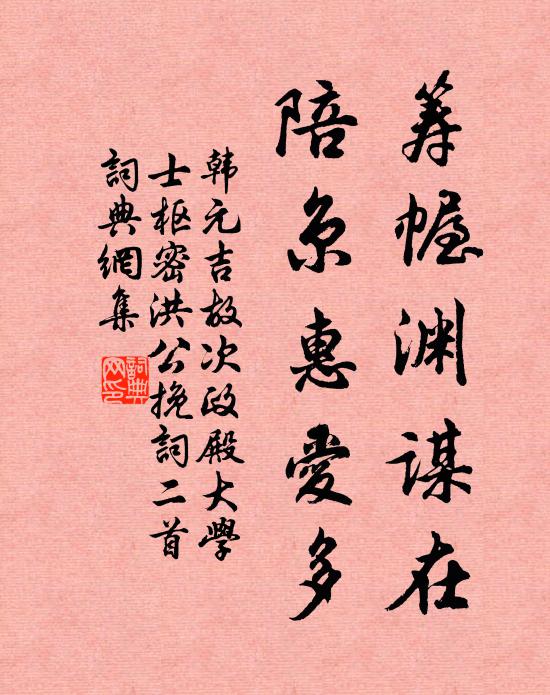 筹幄渊謀在
陪京惠愛多
韩元吉故次政殿大學
士枢密洪公挽詞二首
詞典網集
詞典网印